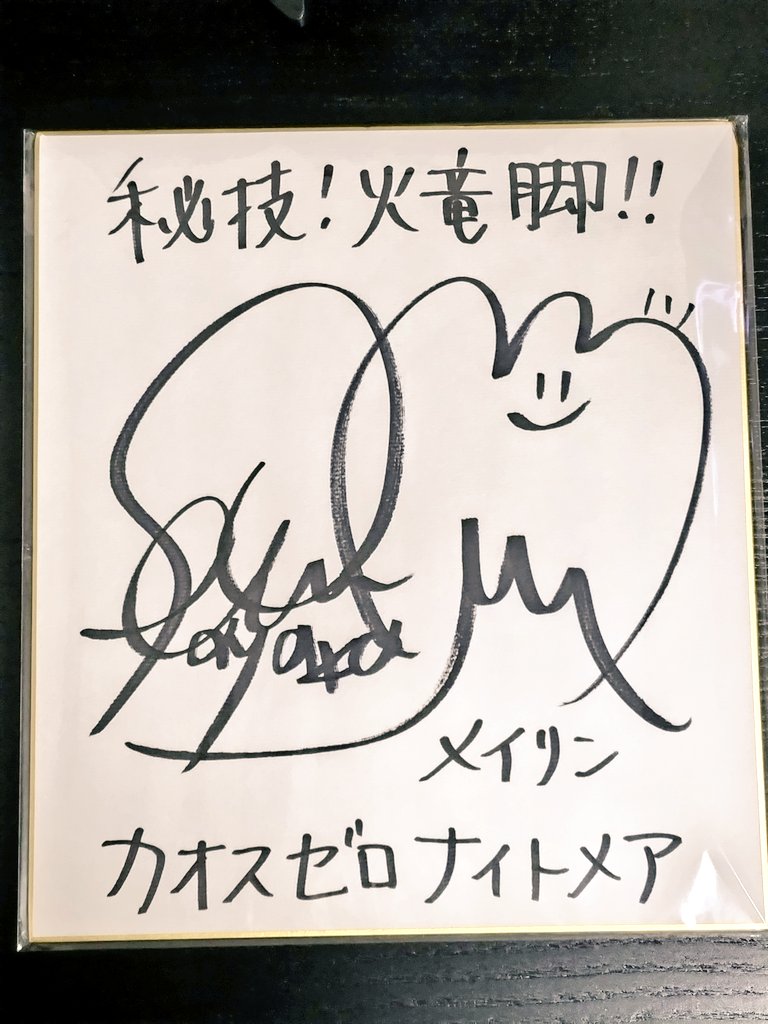 秘技!火竜脚!!
メイリン
カオスゼロナイトメア